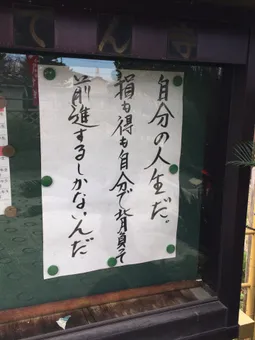 自分の人生だ。
損も得も自分で背負って
前進するしかないんだ